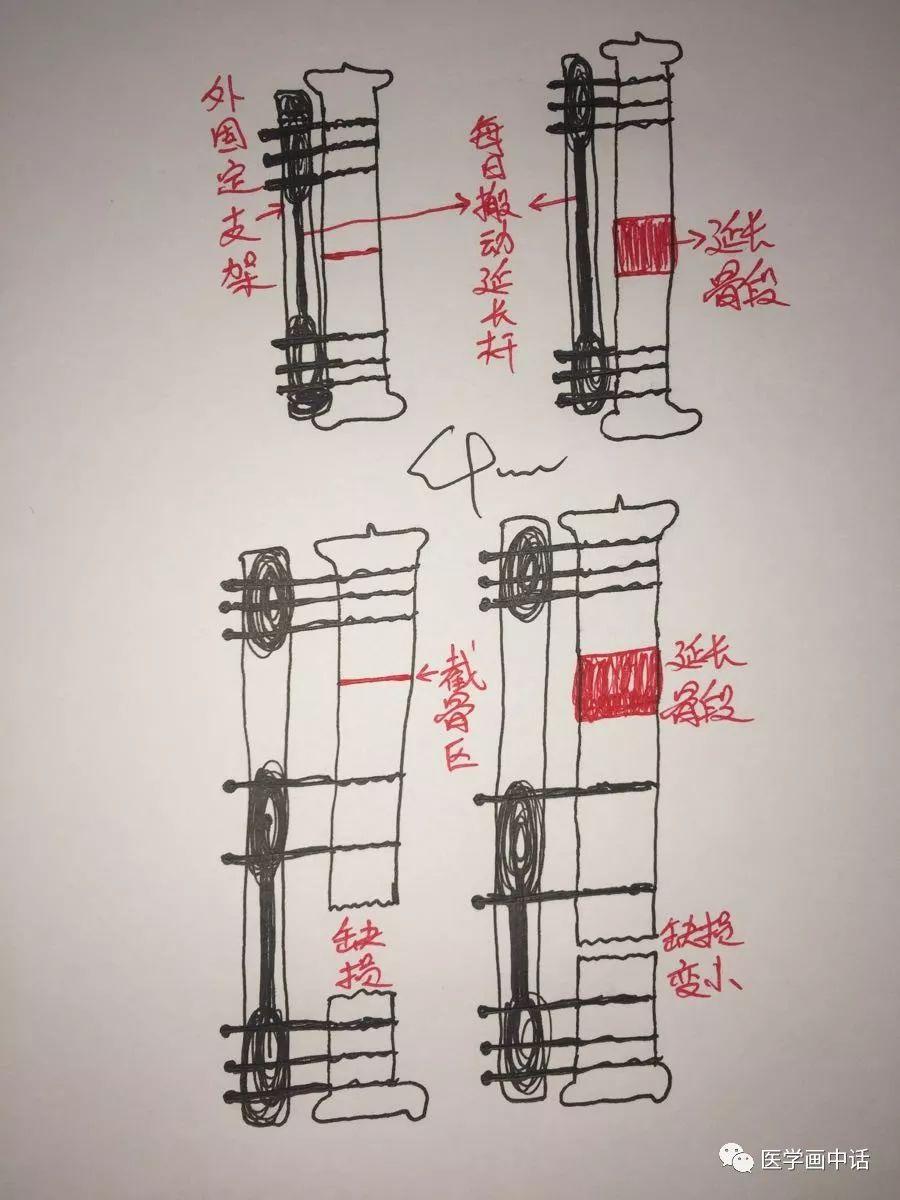 外固定支架
每日搬动延长杆
延长
骨段
截骨区
延长
骨段
缺损
缺损
变小
医学画中话